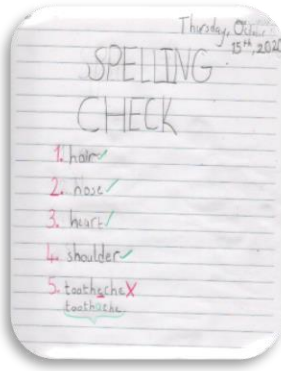 Thursday, October
15th, 2020
SPELLING
CHECK
1. hair
2. nose
3. heart
4. shoulder
5. toothsche
toothache